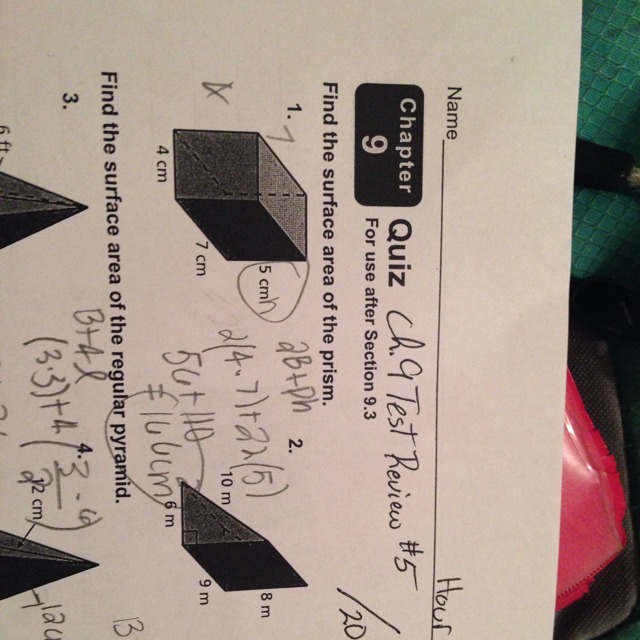 Name
Hour
Chapter 9
Quiz Ch. 9 Test Review #5
For use after Section 9.3
/20
Find the surface area of the prism.
1.
5 cm h
7 cm
4 cm
2B+Ph
2(4·7)+22(5)
56+110
166cm
2.
10 m
8 m
6 m
9 m
Find the surface area of the regular pyramid.
3.
6 ft
B+4
(3·3)+4(3·
4.
12 cm